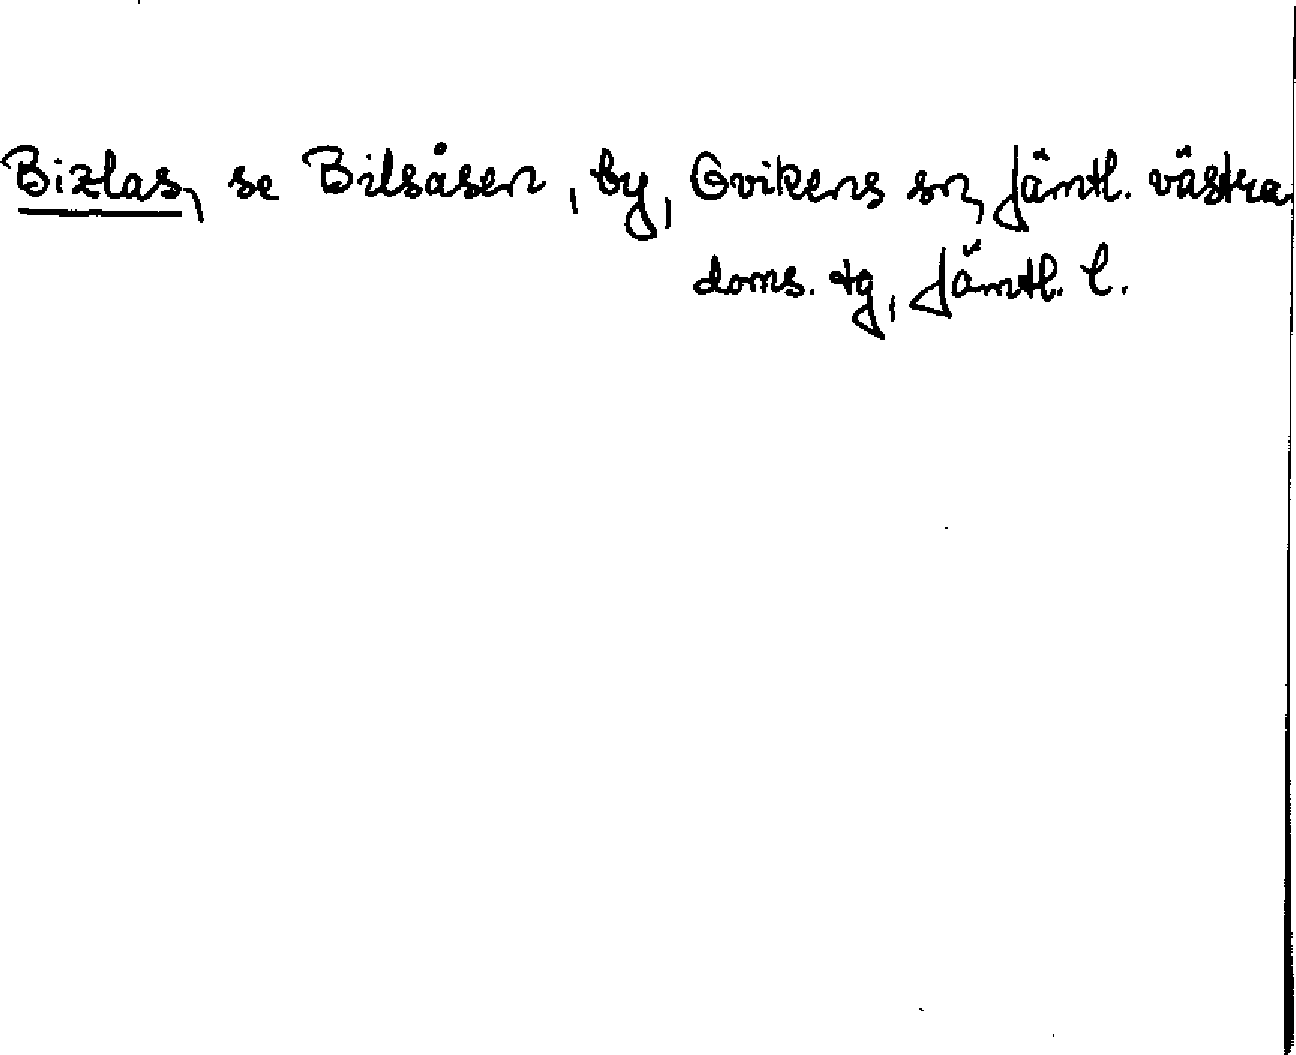 Bizlas, se Bilsåsen, by, Ovikens sn, Jämtl. västra
doms. tg, Jämtl. l.